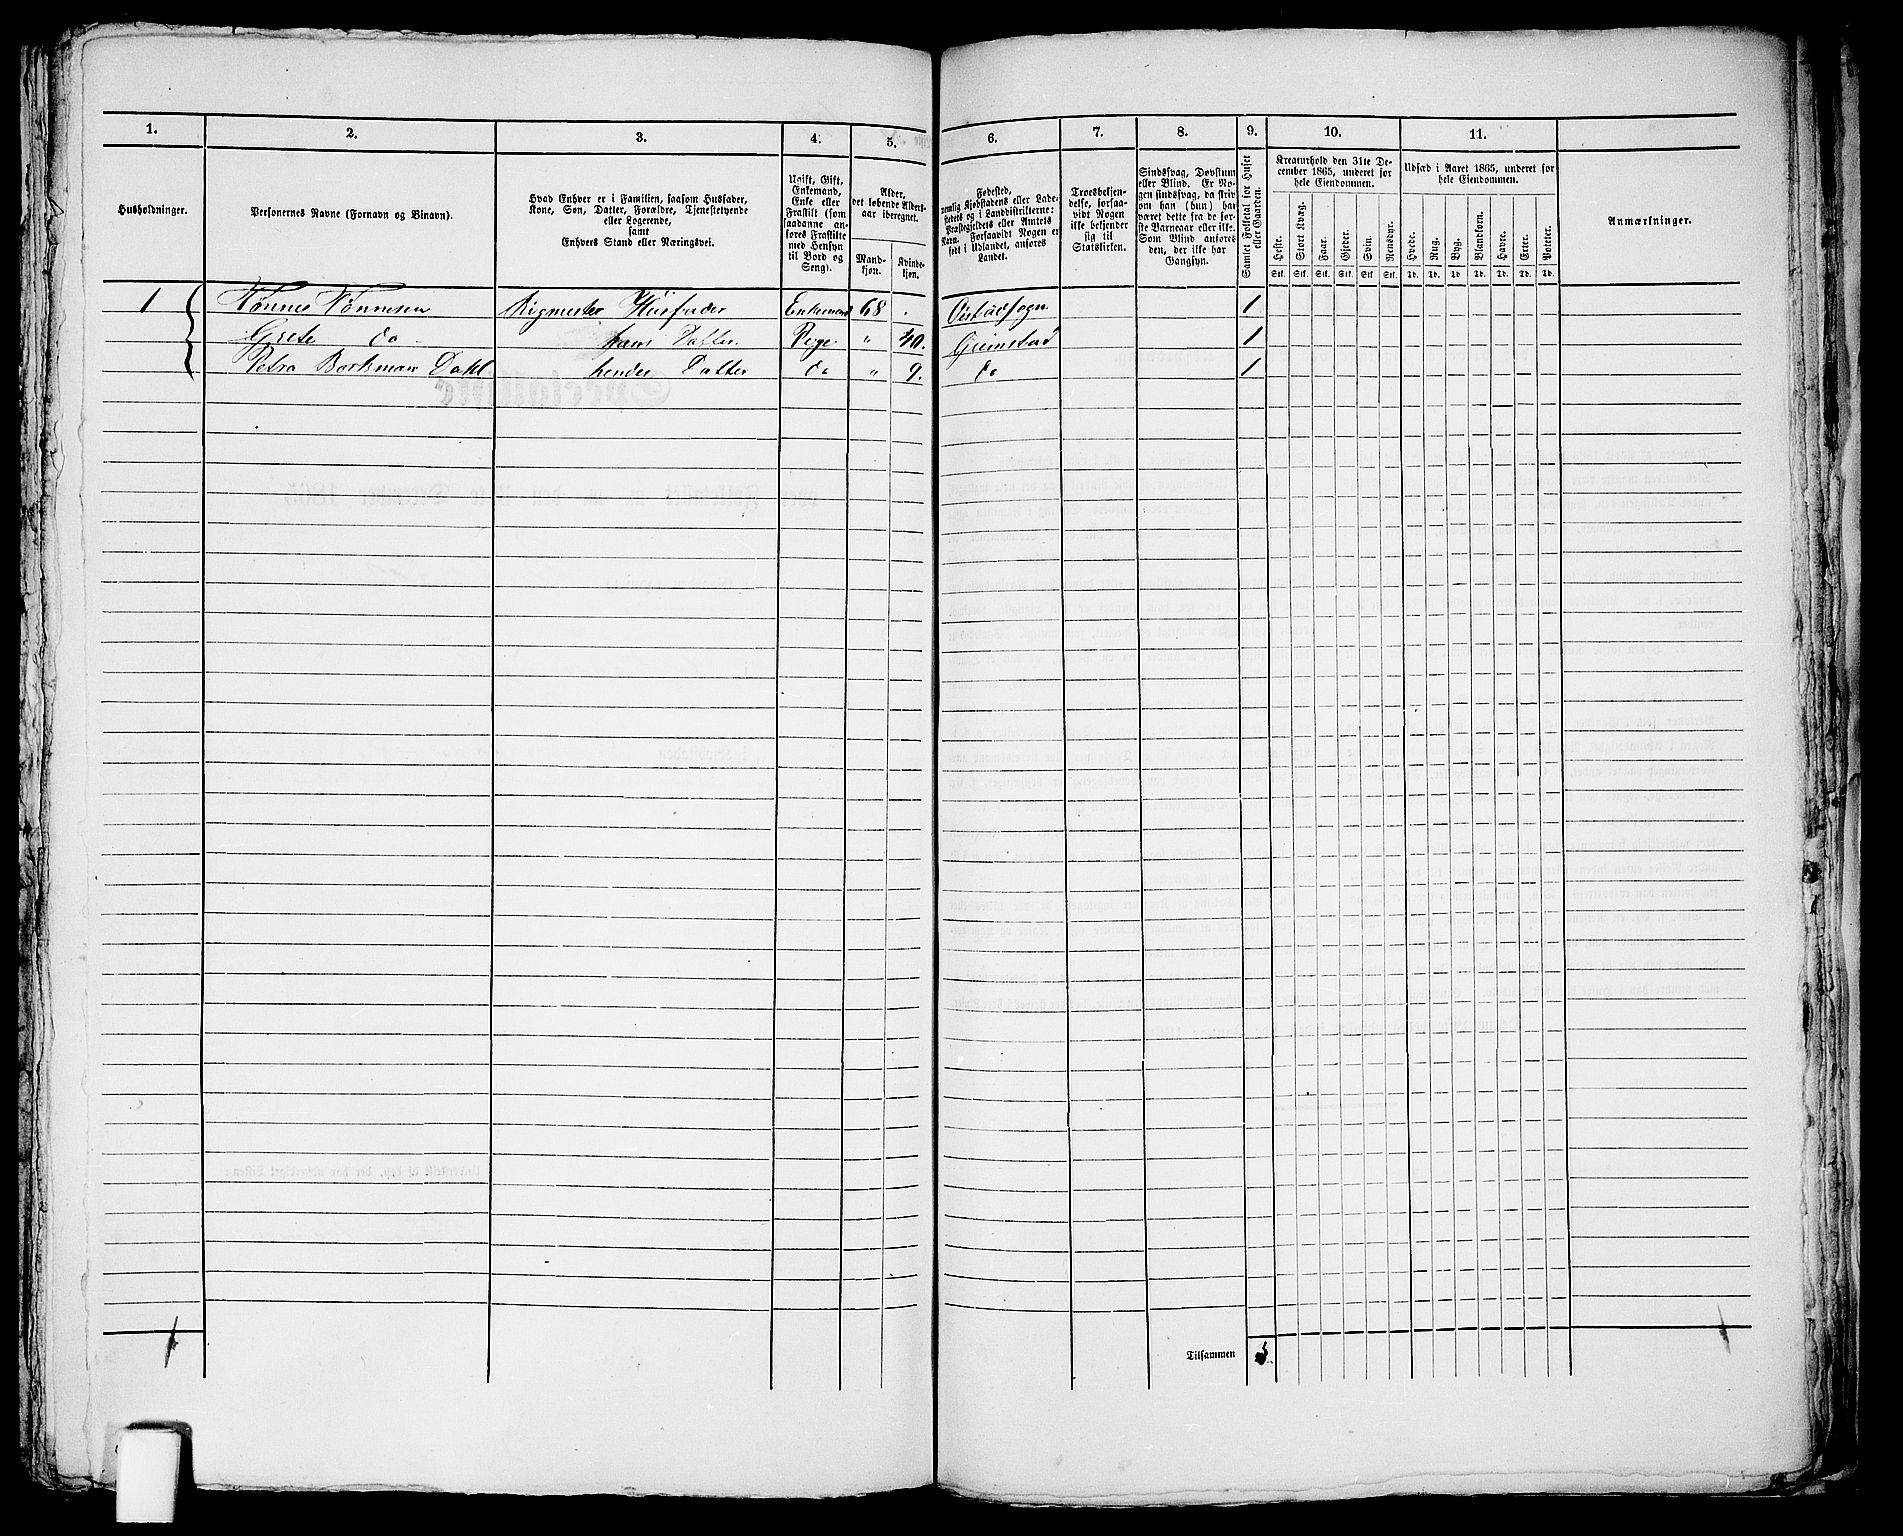 1. 2. 3. 4. 5. 6. 7. 8. 9. 10. 11.
Husholdninger.
Personernes Navne (Fornavn og Binavn).
Hvad Enhver er i Familien, saasom Husfader,
Kone, Søn, Datter, Forældre, Tjenestetyende
eller Logerende,
samt
Enhvers Stand eller Næringsvei.
Ugift, Gift,
Enkemand,
Enke eller
Fraskilt (som
saadanne an-
føres Fraskilte
med Hensyn
til Bord og
Seng).
Alder,
det løbende Alders-
aar iberegnet.
Mand-
kjøn.
Kvinde-
kjøn.
Fødested,
nemlig Kjøbstadens eller Lade-
stedets og i Landdistrikterne:
Præstegjeldets eller Amtets
Navn. Forsaavidt Nogen er
født i Udlandet, anføres
Landet.
Troesbekjen-
delse, forsaa-
vidt Nogen
ikke bekjender
sig til
Statskirken.
Sindssvag, Døvstum
eller Blind. Er No-
gen sindssvag, da skriv
om han (hun) har
været dette fra de før-
ste Barneaar eller ikke.
Som Blind anføres
den, der ikke har
Gangsyn.
Samlet Folketal for Huset
eller Gaarden.
Kreaturhold den 31te De-
cember 1865, underet for
hele Eiendommen.
Heste. Stort Kvæg. Faar. Gjeder. Svin. Rensdyr.
Stk. Stk. Stk. Stk. Stk. Stk.
Udsæd i Aaret 1865, underet for
hele Eiendommen.
Hvede. Rug. Byg. Blandkorn. Havre. Erter. Poteter.
Td. Td. Td. Td. Td. Td. Td.
Anmærkninger.
1 Tønnes Tønnesen Rigmester Husfader Enkemand 68 . Oiestadsogn 1
Grete do hans Datter. Pige " 40. Grimstad 1
Petra Dahl hendes Datter do " 9. do 1
Tilsammen 3